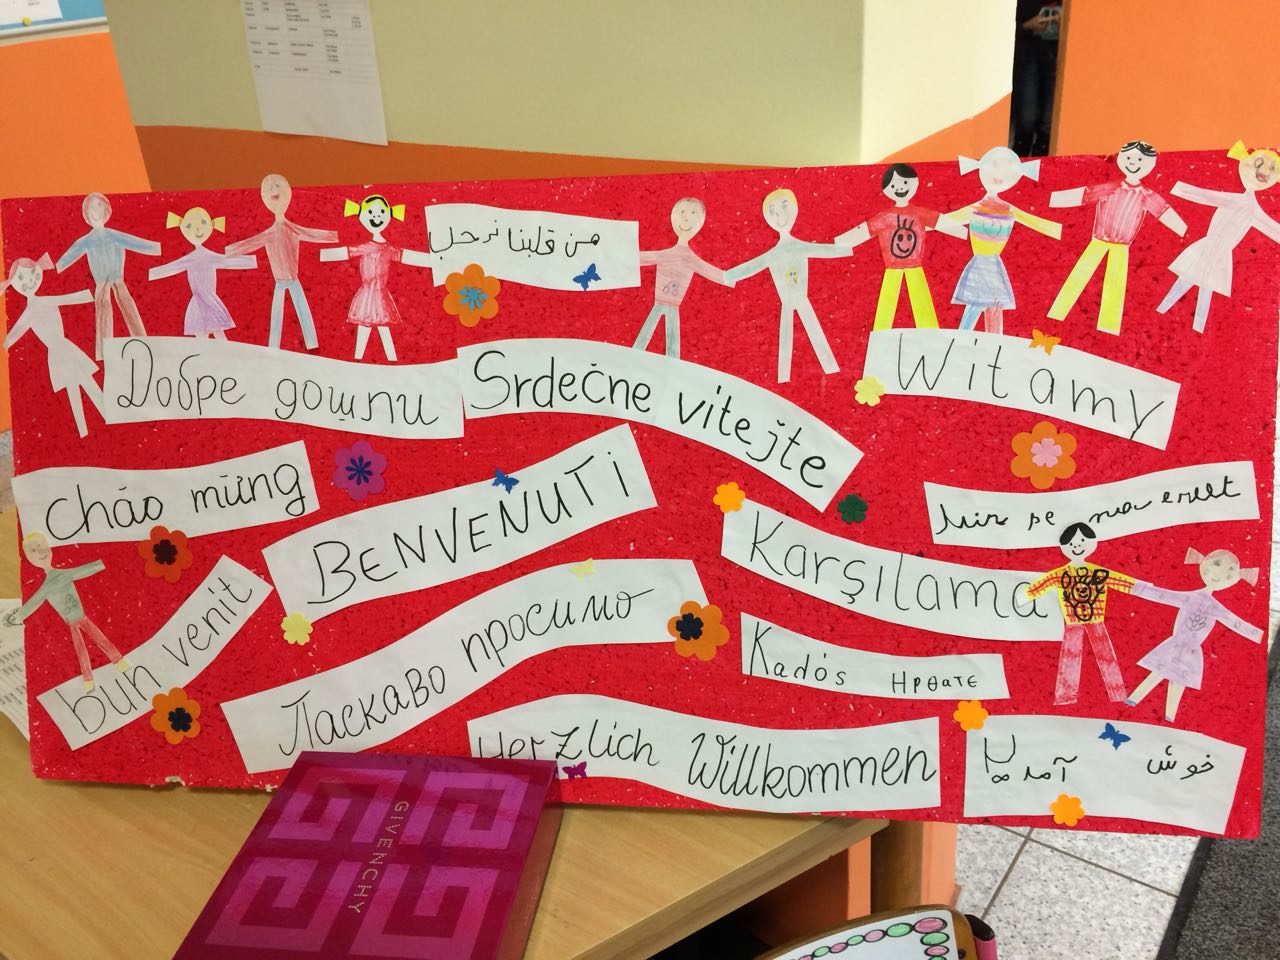 من قلبنا نرحل
Добре дошли
Srdečne vitejte
Witamy
chāo mūng
BENVENUTi
se na
Karşılama
bun venit
Ласкаво просимо
Kadós Ηρθατε
Herzlich Willkommen
خوش آمدید
GIVENCHY